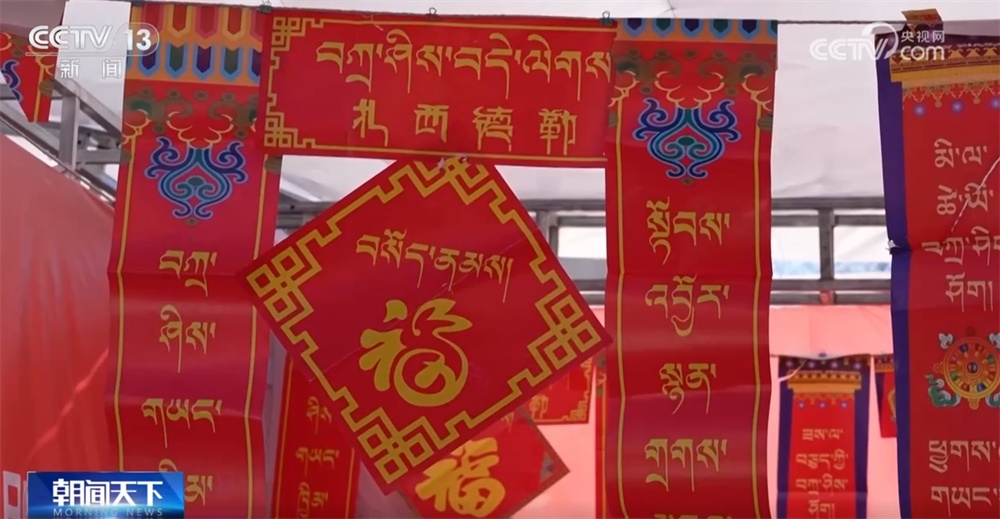 CCTV 13
新闻
CCTV 央视网
com
བཀྲ་ཤིས་བདེ་ལེགས
扎西德勒
བསོད་ནམས།
福
བཀྲ་
ཤིས་
གཡང་
སྟོབས་
འབྱོར་
སྙན་
གྲགས་
མི་ལ་
ཚེ་ཡི་
བཀྲ་ཤིས་
ཤོག།
ཕྱུགས་ལ་
གཡང་
福
朝闻天下
MORNING NEWS